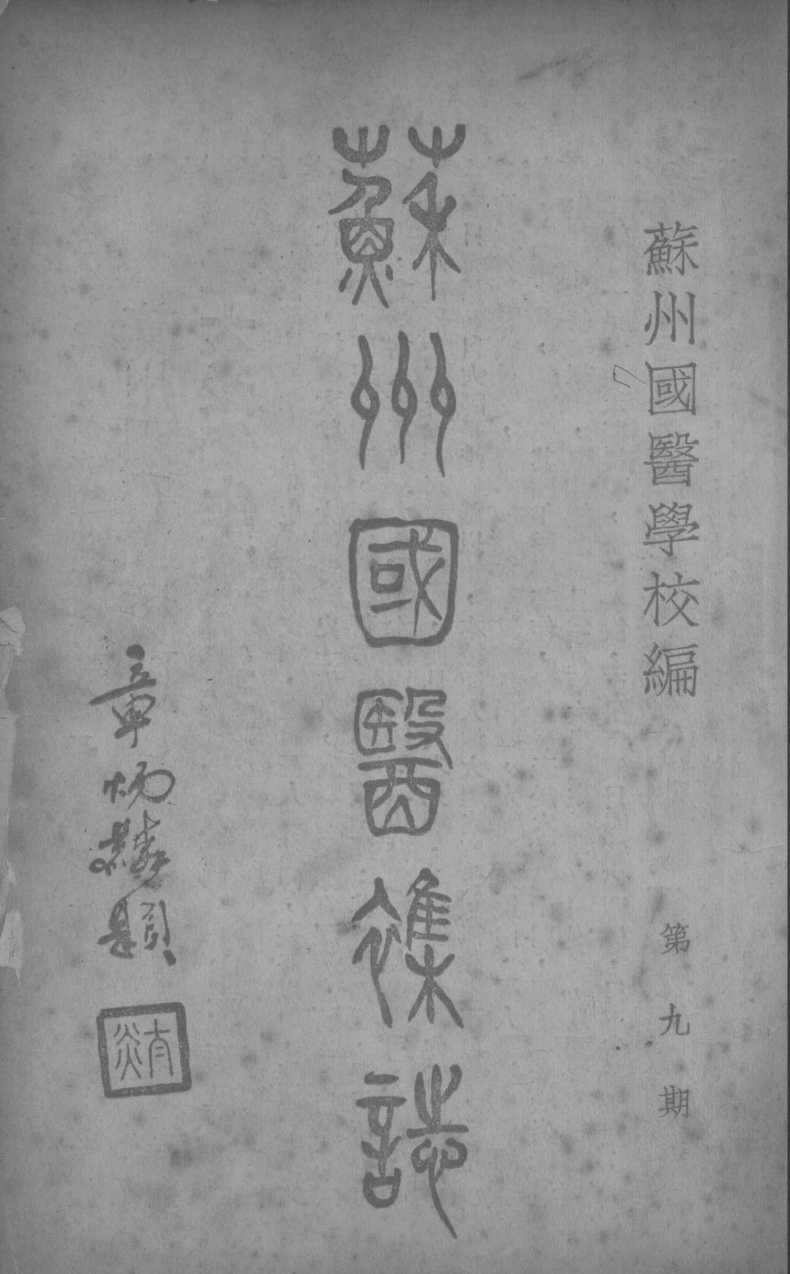 蘇州國醫學校編
第九期
蘇州國醫雜誌
章炳麟題
太炎